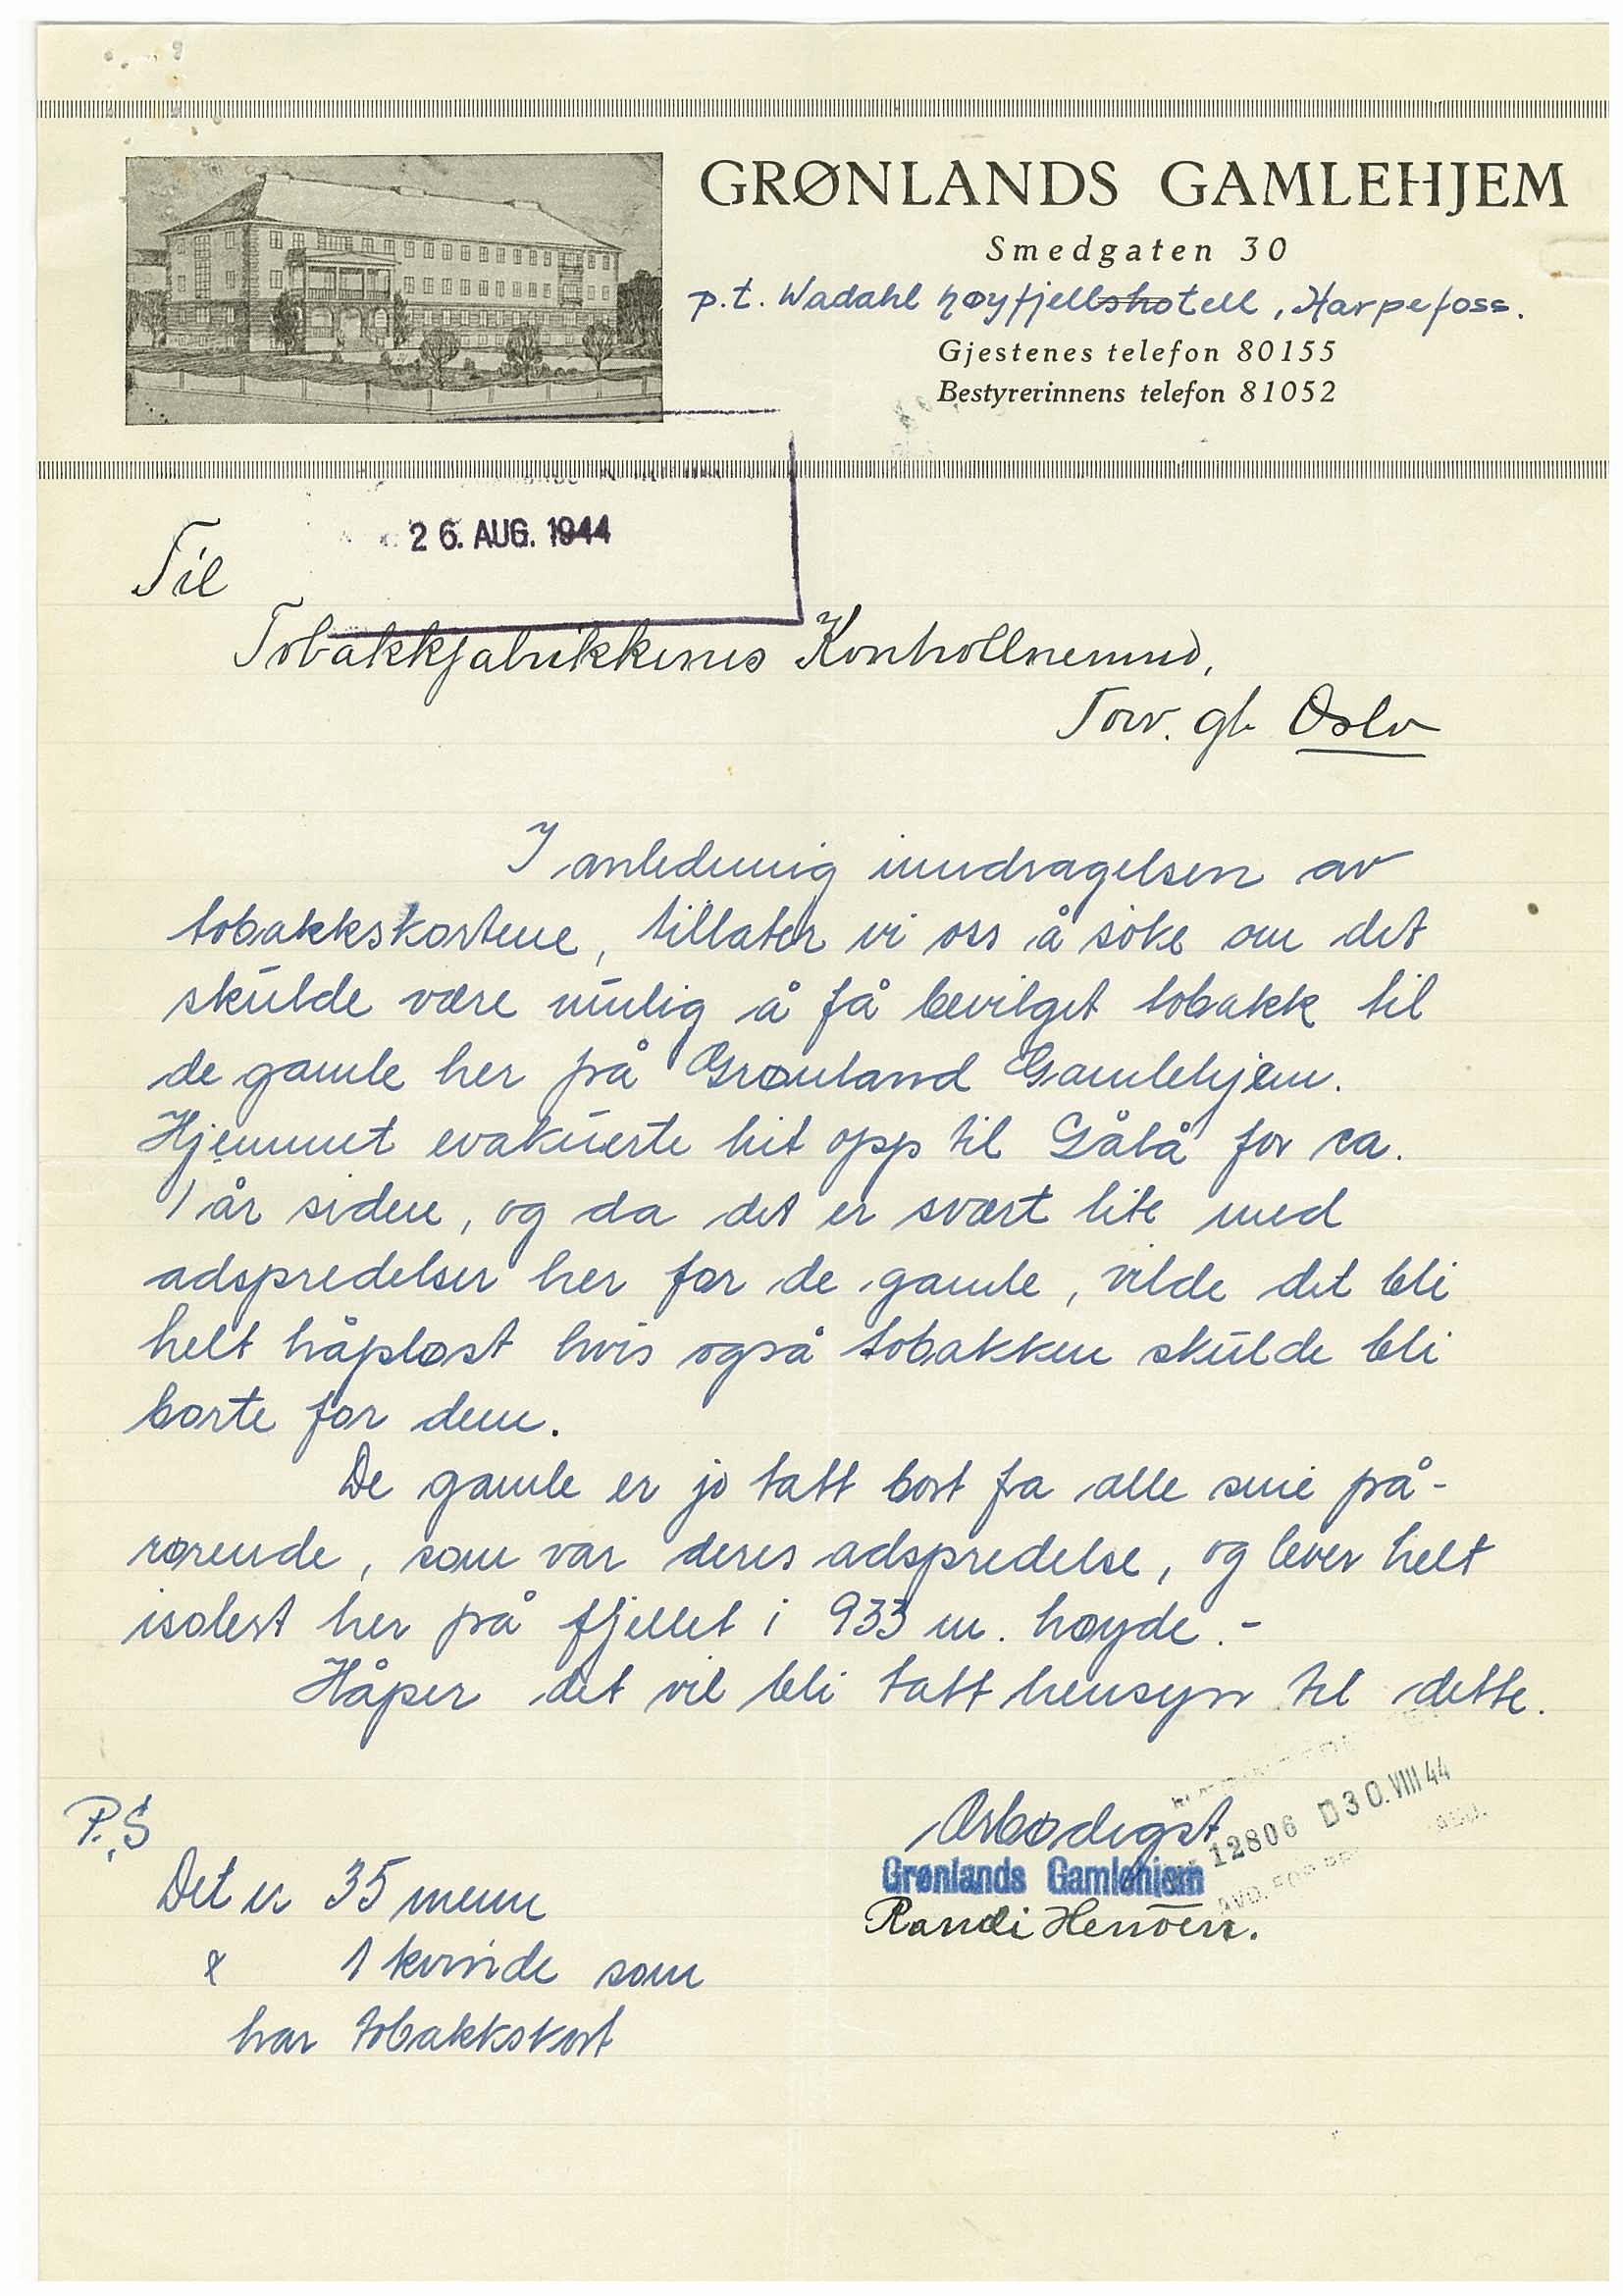 GRØNLANDS GAMLEHJEM
Smedgaten 30
p.t. Wadahl høyfjellshotell, Harpefoss.
Gjestenes telefon 80155
Bestyrerinnens telefon 81052
26. AUG. 1944
Til
Tobakkfabrikkenes Kontrollnemnd,
Torv. gt. Oslo
I anledning inndragelsen av
tobakkskortene, tillater vi oss å søke om det
skulde være mulig å få bevilget tobakk til
de gamle her på Grønland Gamlehjem.
Hjemmet evakuerte hit opp til Gålå for ca.
1 år siden, og da det er svært lite med
adspredelser her for de gamle, vilde det bli
helt håpløst hvis også tobakken skulde bli
borte for dem.
De gamle er jo tatt bort fra alle sine på-
rørende, som var deres adspredelse, og lever helt
isolert her på fjellet i 933 m. høyde.-
Håper det vil bli tatt hensyn til dette.
Ærbødigst
12806 D30.VIII44
Grønlands Gamlehjem
Randi
P.S
Det er 35 menn
& 1 kvinde som
har tobakkskort